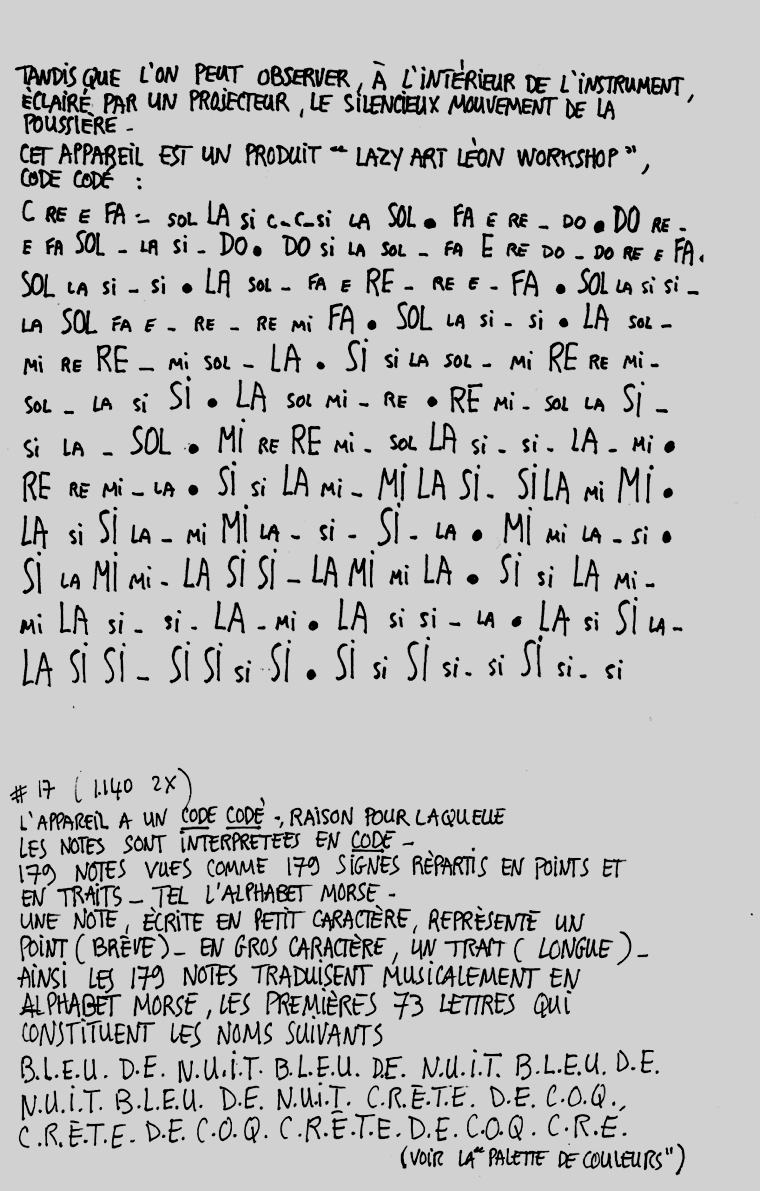 TANDIS QUE L'ON PEUT OBSERVER, À L'INTÉRIEUR DE L'INSTRUMENT,
ÉCLAIRÉ PAR UN PROJECTEUR, LE SILENCIEUX MOUVEMENT DE LA
POUSSIÈRE -
CET APPAREIL EST UN PRODUIT " LAZY ART LÉON WORKSHOP ",
CODE CODÉ :
C RE E FA - SOL LA Si C-C-Si LA SOL • FA E RE - DO • DO RE -
E FA SOL - LA Si - DO • DO Si LA SOL - FA E RE DO - DO RE E FA •
SOL LA Si - Si • LA SOL - FA E RE - RE E - FA • SOL LA Si Si -
LA SOL FA E - RE - RE Mi FA • SOL LA Si - Si • LA SOL -
Mi RE RE - Mi SOL - LA • Si Si LA SOL - Mi RE RE Mi -
SOL - LA Si Si • LA SOL Mi - RE • RE Mi - SOL LA Si -
Si LA - SOL • Mi RE RE Mi - SOL LA Si - Si - LA - Mi •
RE RE Mi - LA • Si Si LA Mi - Mi LA Si - Si LA Mi Mi •
LA Si Si LA - Mi Mi LA - Si - Si - LA • Mi Mi LA - Si •
Si LA Mi Mi - LA Si Si - LA Mi Mi LA • Si Si LA Mi -
Mi LA Si - Si - LA - Mi • LA Si Si - LA • LA Si Si LA -
LA Si Si - Si Si Si Si • Si Si Si Si - Si Si Si - Si
# 17 ( 1.140 2X )
L'APPAREIL A UN CODE CODÉ -, RAISON POUR LAQUELLE
LES NOTES SONT INTERPRETEES EN CODE -
179 NOTES VUES COMME 179 SIGNES RÉPARTIS EN POINTS ET
EN TRAITS - TEL L'ALPHABET MORSE -
UNE NOTE, ÉCRITE EN PETIT CARACTÈRE, REPRÉSENTE UN
POINT ( BRÈVE ) - EN GROS CARACTÈRE, UN TRAIT ( LONGUE ) -
AINSI LES 179 NOTES TRADUISENT MUSICALEMENT EN
ALPHABET MORSE, LES PREMIÈRES 73 LETTRES QUI
CONSTITUENT LES NOMS SUIVANTS
B.L.E.U. D.E. N.U.i.T. B.L.E.U. D.E. N.U.i.T. B.L.E.U. D.E.
N.U.i.T. B.L.E.U. D.E. N.U.i.T. C.R.Ê.T.E. D.E. C.O.Q.,
C.R.Ê.T.E. D.E. C.O.Q. C.R.Ê.T.E. D.E. C.O.Q. C.R.E.
(VOIR LA "PALETTE DE COULEURS")